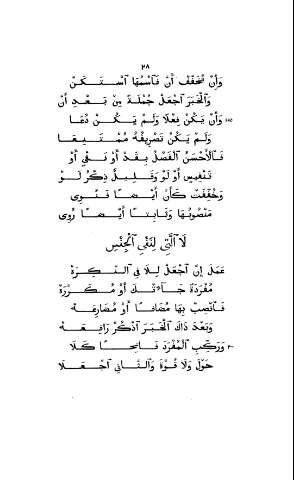 ٢٨
وَإِنْ تُخَفَّفْ أَنَّ فَاسْمُهَا اسْتَكَنّْ
وَالْخَبَرَ اجْعَلْ جُمْلَةً مِنْ بَعْدِ أَنْ
١٩٥ وَإِنْ يَكُنْ فِعْلًا وَلَمْ يَكُنْ دُعَا
وَلَمْ يَكُنْ تَصْرِيفُهُ مُمْتَنِعَا
فَالْأَحْسَنُ الْفَصْلُ بِقَدْ أَوْ نَفْيٍ أَوْ
تَنْفِيسٍ أَوْ لَوْ وَقَلِيلٌ ذِكْرُ لَوْ
وَخُفِّفَتْ كَأَنَّ أَيْضًا فَنُوِي
مَنْصُوبُهَا وَثَابِتًا أَيْضًا رُوِي
لَا الَّتِي لِنَفْيِ الْجِنْسِ
عَمَلَ إِنَّ اجْعَلْ لِلَا فِي النَّكِرَهْ
مُفْرَدَةً جَاءَتْكَ أَوْ مُكَرَّرَهْ
فَانْصِبْ بِهَا مُضَافًا أَوْ مُضَارِعَهْ
وَبَعْدَ ذَاكَ الْخَبَرَ اذْكُرْ رَافِعَهْ
وَرَكِّبِ الْمُفْرَدَ فَاتِحًا كَلَا
حَوْلَ وَلَا قُوَّةَ وَالثَّانِي اجْعَلَا